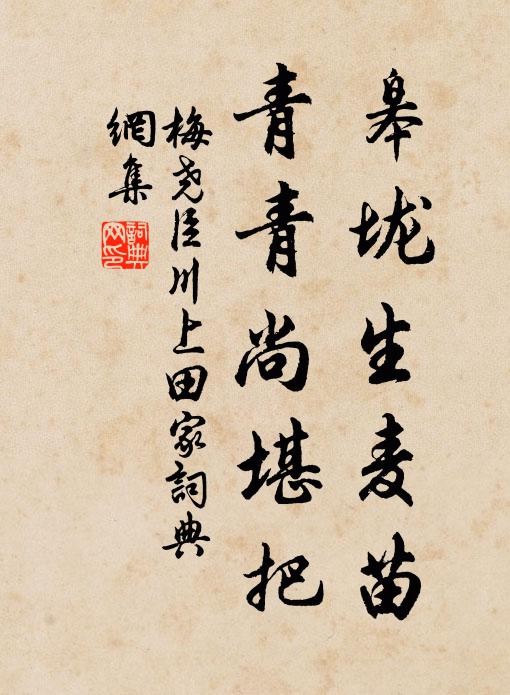 皋垅生麦苗
青青尚堪把
梅尧臣川上田家詞典
網集
詞典
网印